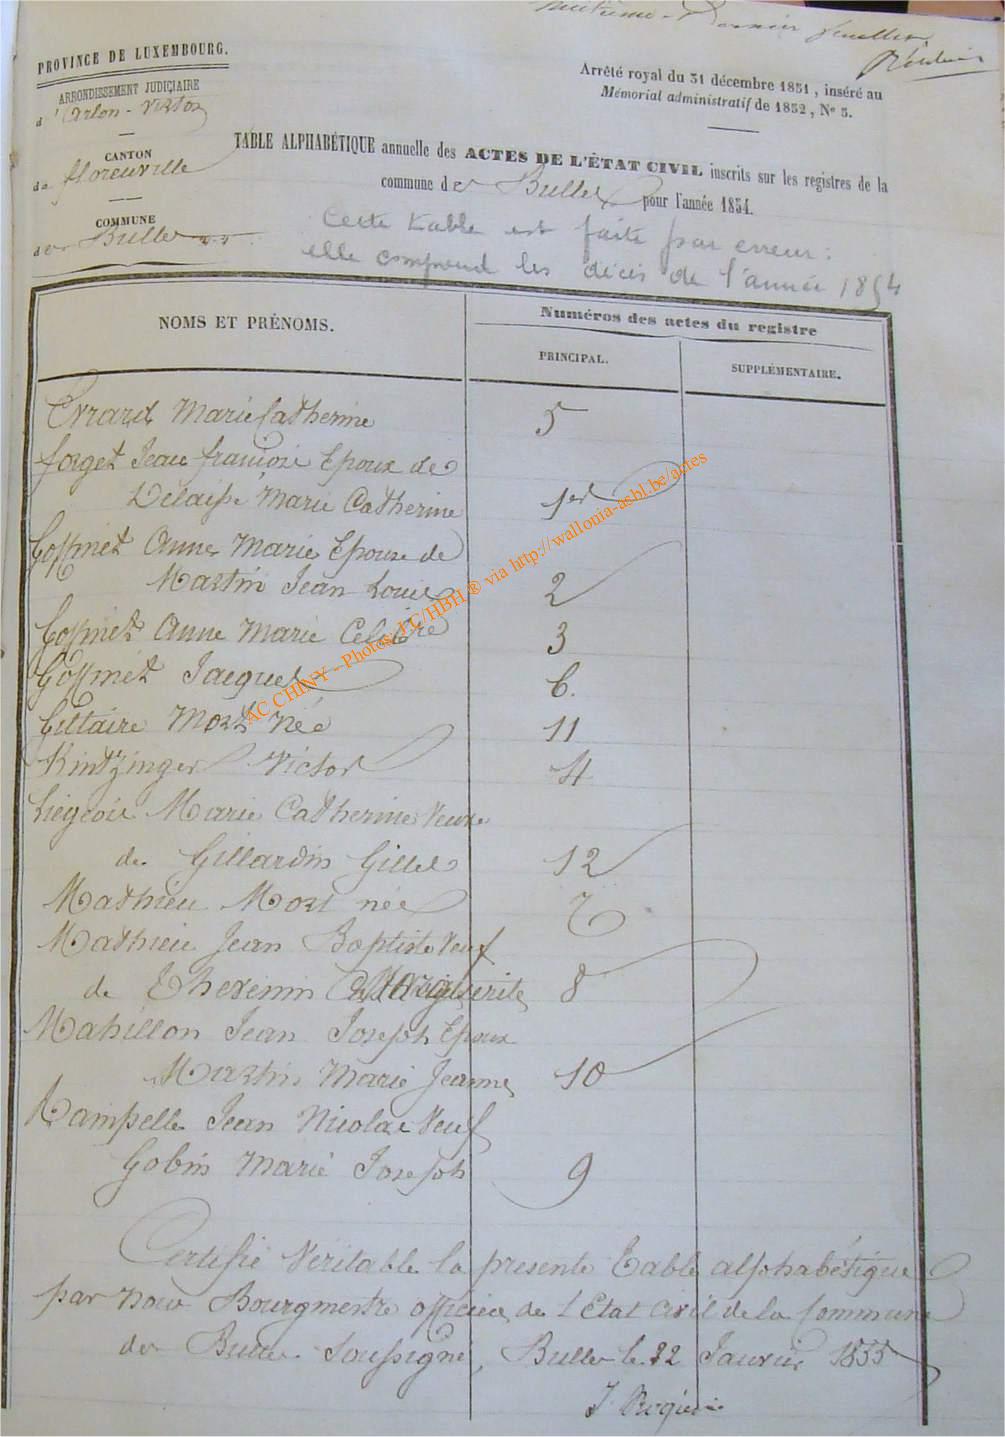 PROVINCE DE LUXEMBOURG.
ARRONDISSEMENT JUDICIAIRE
d' Arlon - Virton
CANTON
de florenville
COMMUNE
de Bulles
Arrêté royal du 31 décembre 1851, inséré au
Mémorial administratif de 1852, No 5.
TABLE ALPHABÉTIQUE annuelle des ACTES DE L'ÉTAT CIVIL inscrits sur les registres de la
commune de Bulles pour l'année 1854.
Cette table est faite par erreur:
elle comprend les décès de l'année 1854
NOMS ET PRÉNOMS.
Numéros des actes du registre
PRINCIPAL.
SUPPLÉMENTAIRE.
Evrard Marie Catherine 5
forget Jean françois Epoux de
Delaisse Marie Catherine 1er
Goffinet Anne Marie Epouse de
Martin Jean Louis 2
Goffinet Anne Marie Célestre 3
Goffinet Jacques 6.
Giltaire Mort Née 11
Kintzinger Victor 4
Liégeois Marie Catherine Veuve
de Gillardin Gilles 12
Mathieu Mort née 7
Mathieu Jean Baptiste Veuf
de Thevenin Marguerite 8
Mahillon Jean Joseph Epoux
Martin Marie Jeanne 10
Rampelle Jean Nicolas Veuf
Gobin Marie Joseph 9
Certifié Véritable la présente Table alphabétique
par nous Bourgmestre officier de l'Etat Civil de la Commune
de Bulles Soussigné, Bulles le 22 Janvier 1855
AC CHINY - Photos LC/HBH ® via http://wallonia-asbl.be/actes